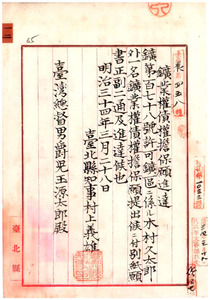 鑛業權債權擔保願進達
鑛第百七十八號許可鑛區ニ係ル木村久太郎
外一名鑛業權債權擔保願提出候ニ付別紙願
書正副二通及進達候也
明治三十四年三月二十八日
臺北縣知事村上義雄
臺灣總督男爵兒玉源太郎殿
臺北縣